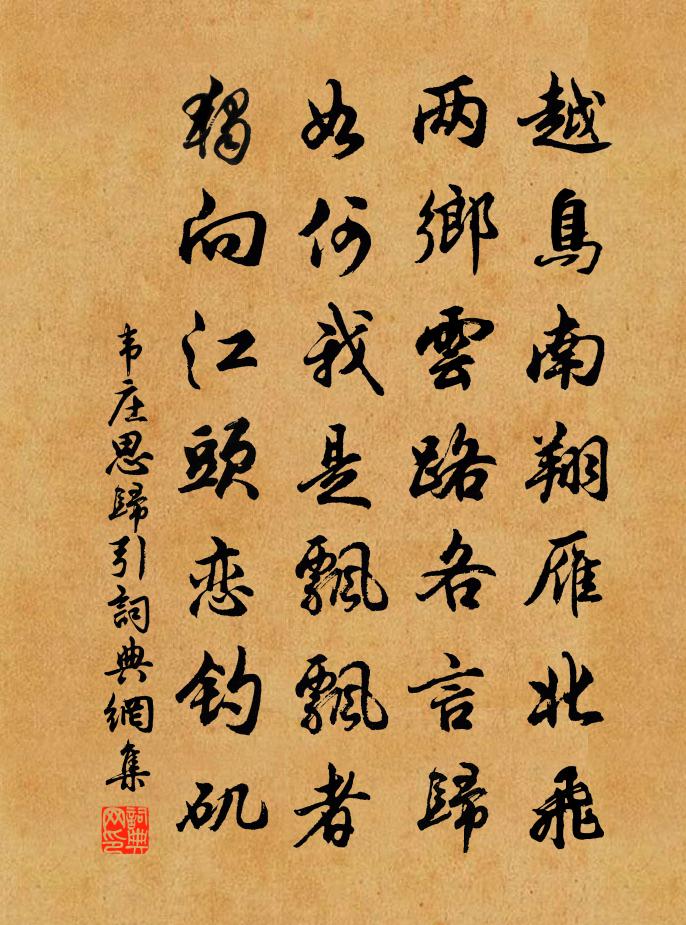 越鳥南翔雁北飛
两鄉雲路各言歸
如何我是飄飄者
獨向江頭恋钓矶
韦庄思歸引詞典網集
詞典网印